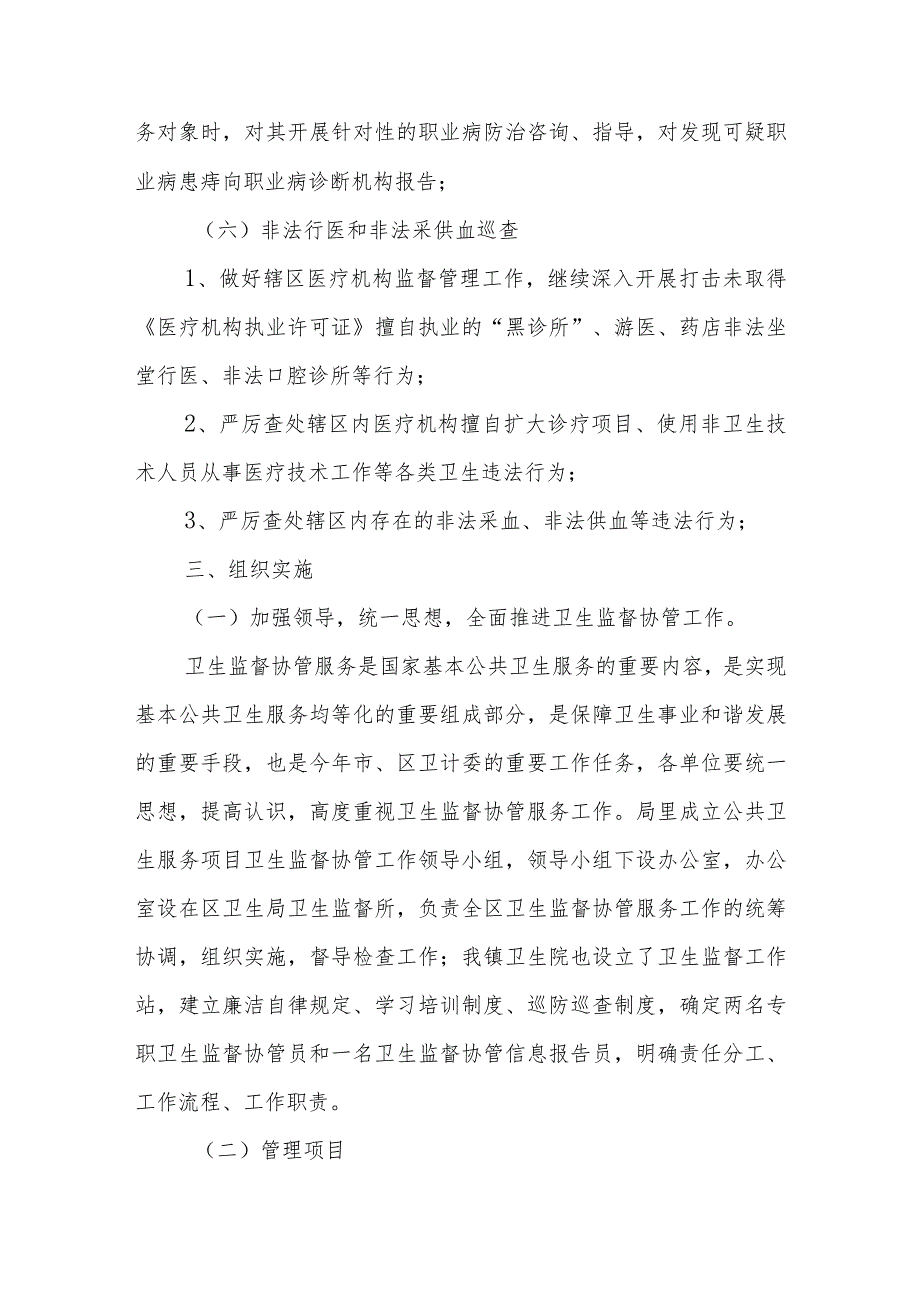 务对象时，对其开展针对性的职业病防治咨询、指导，对发现可疑职
业病患痔向职业病诊断机构报告；
（六）非法行医和非法采供血巡查
1、做好辖区医疗机构监督管理工作，继续深入开展打击未取得
《医疗机构执业许可证》擅自执业的“黑诊所”、游医、药店非法坐
堂行医、非法口腔诊所等行为；
2、严厉查处辖区内医疗机构擅自扩大诊疗项目、使用非卫生技
术人员从事医疗技术工作等各类卫生违法行为；
3、严厉查处辖区内存在的非法采血、非法供血等违法行为；
三、组织实施
（一）加强领导，统一思想，全面推进卫生监督协管工作。
卫生监督协管服务是国家基本公共卫生服务的重要内容，是实现
基本公共卫生服务均等化的重要组成部分，是保障卫生事业和谐发展
的重要手段，也是今年市、区卫计委的重要工作任务，各单位要统一
思想，提高认识，高度重视卫生监督协管服务工作。局里成立公共卫
生服务项目卫生监督协管工作领导小组，领导小组下设办公室，办公
室设在区卫生局卫生监督所，负责全区卫生监督协管服务工作的统筹
协调，组织实施，督导检查工作；我镇卫生院也设立了卫生监督工作
站，建立廉洁自律规定、学习培训制度、巡防巡查制度，确定两名专
职卫生监督协管员和一名卫生监督协管信息报告员，明确责任分工、
工作流程、工作职责。
（二）管理项目